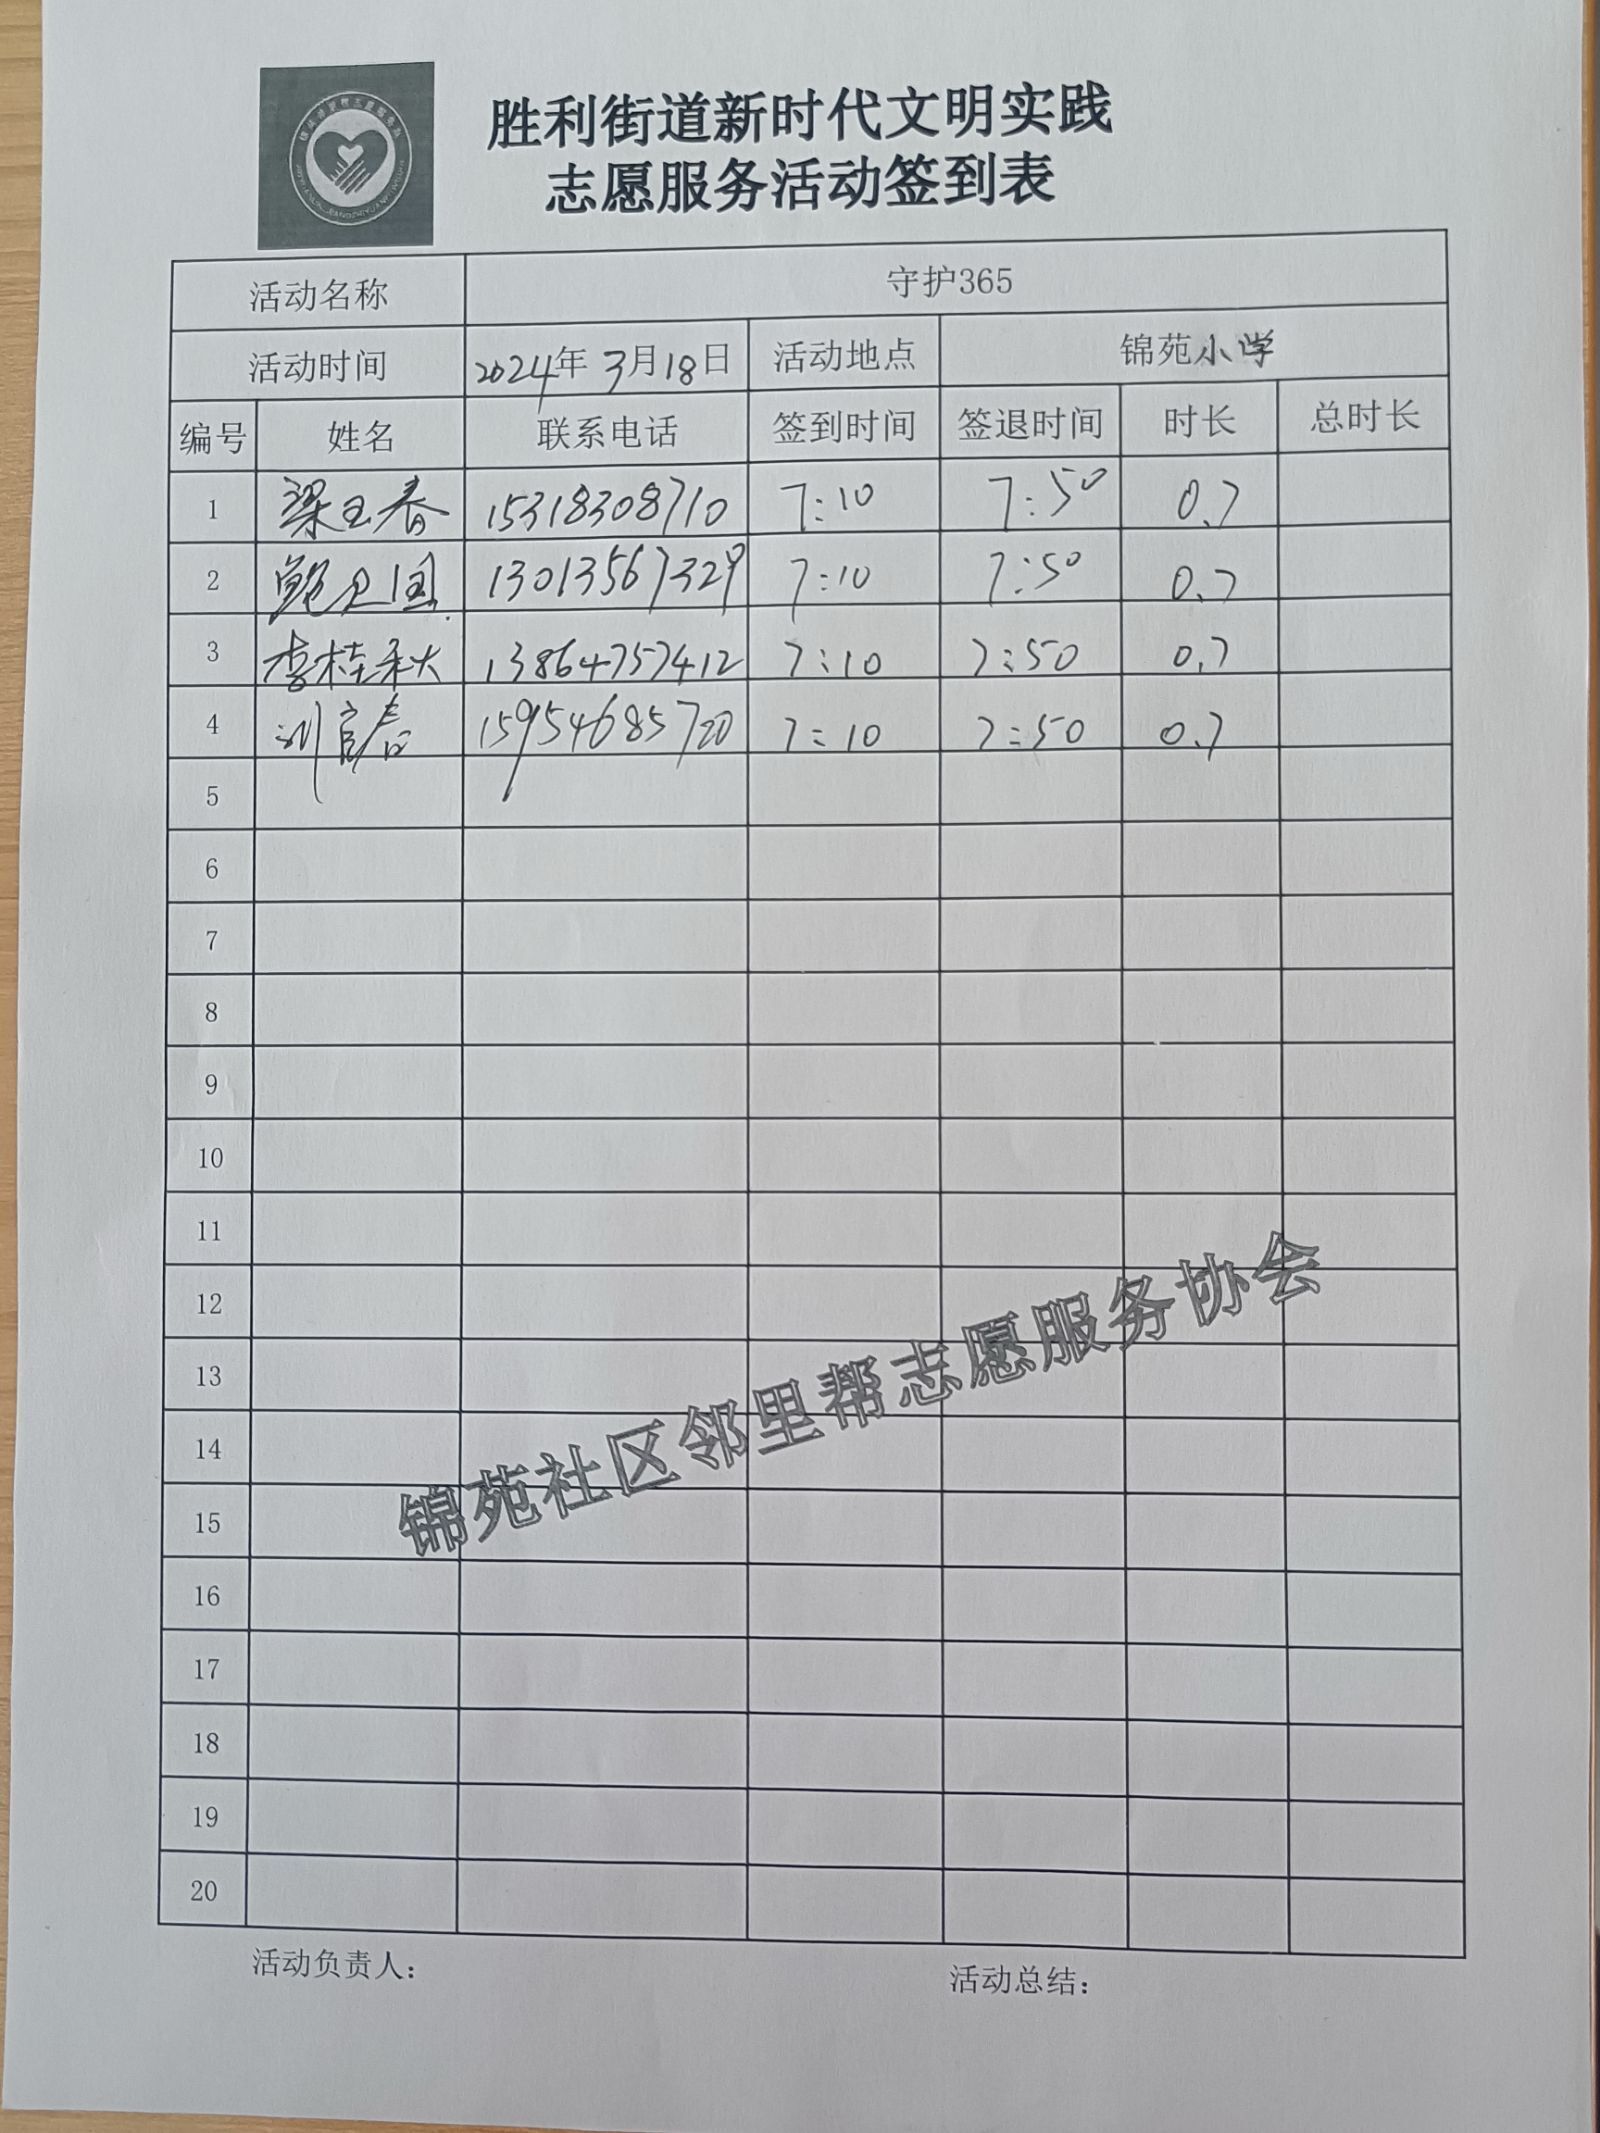 胜利街道新时代文明实践
志愿服务活动签到表
活动名称 守护365
活动时间 2024年 3月18日 活动地点 锦苑小学
编号 姓名 联系电话 签到时间 签退时间 时长 总时长
1 梁玉春 15318308710 7:10 7:50 0.7
2 鲍卫国 13013567329 7:10 7:50 0.7
3 李桂秋 13864757412 7:10 7:50 0.7
4 刘官春 15954685720 7:10 7:50 0.7
5
6
7
8
9
10
11
12
13
14
15
16
17
18
19
20
锦苑社区邻里帮志愿服务协会
活动负责人： 活动总结：